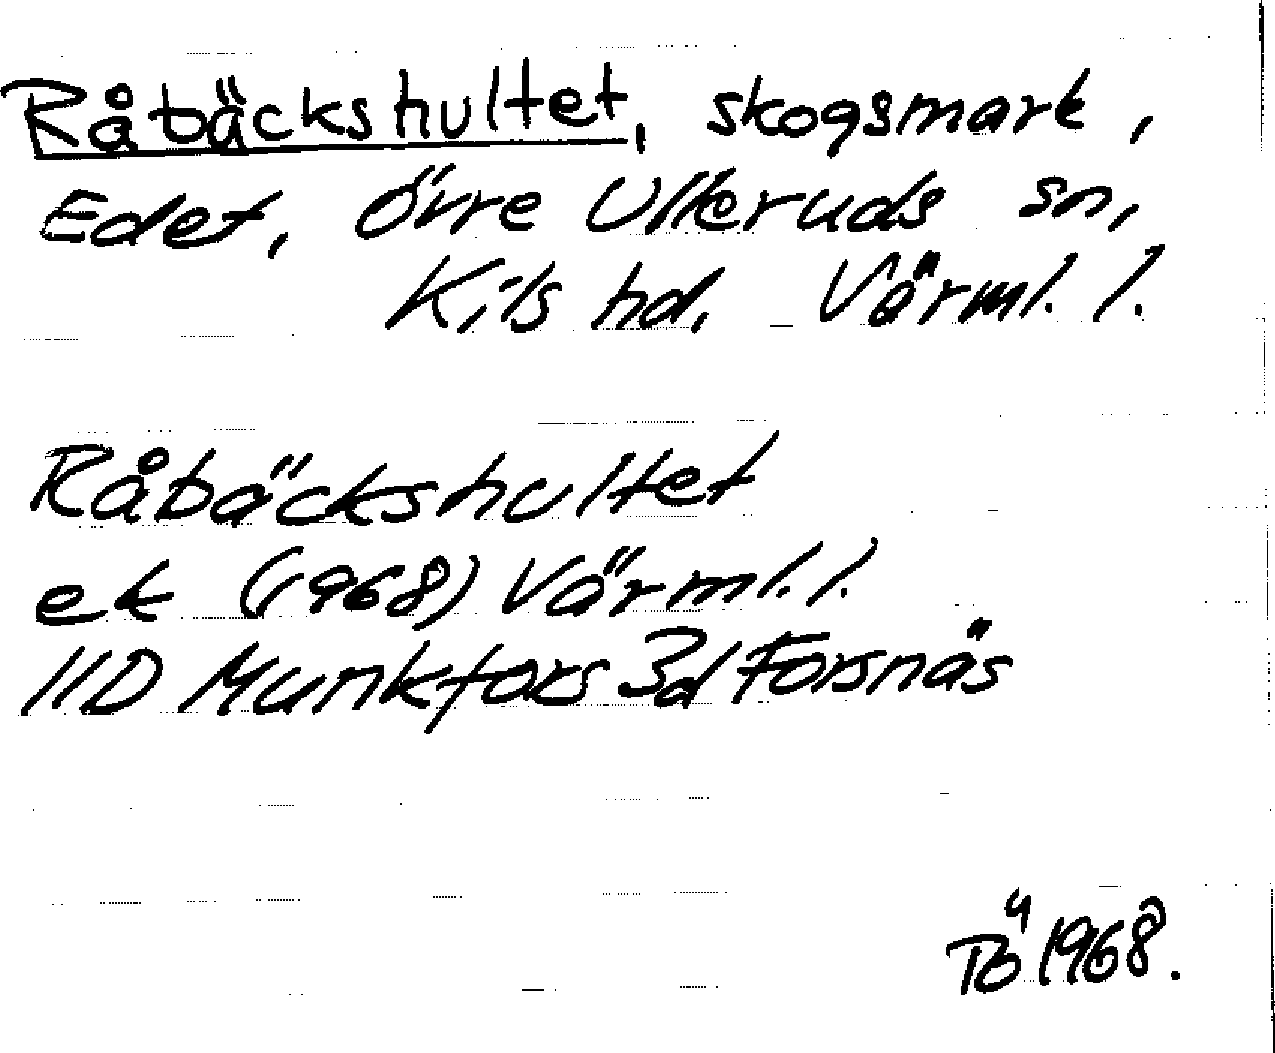 Råbäckshultet, skogsmark,
Edet, Övre Ulleruds sn,
Kils hd. Värml. l.
Råbäckshultet
ek (1968) Värml. l.
11D Munkfors 3d Forsnäs
TÖ 1968.